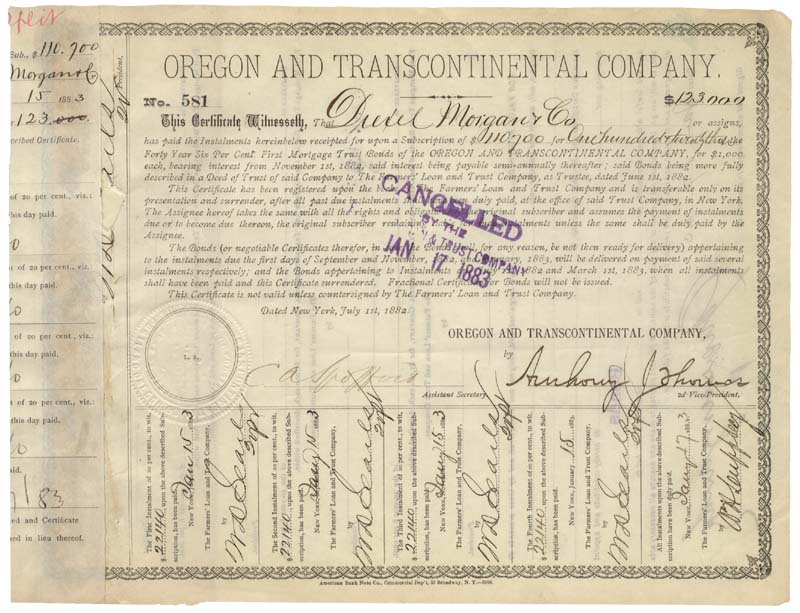 split
Sub., $110.700
Morgan & Co
15 1883
123.000
scribed Certificate.
President.
of 20 per cent., viz.:
this day paid.
of 20 per cent., viz.:
this day paid.
of 20 per cent., viz.:
this day paid.
of 20 per cent., viz.:
this day paid.
ed and Certificate
ed in lieu thereof.
OREGON AND TRANSCONTINENTAL COMPANY.
No. 581
$123000
This Certificate Witnesseth, That Drexel Morgan & Co or assigns,
has paid the Instalments hereinbelow receipted for upon a Subscription of $110.700 for One hundred twenty three
Forty Year Six Per Cent. First Mortgage Trust Bonds of the OREGON AND TRANSCONTINENTAL COMPANY, for $1,000
each, bearing interest from November 1st, 1882, said interest being payable semi-annually thereafter; said Bonds being more fully
described in a Deed of Trust of said Company to The Farmers' Loan and Trust Company, as Trustee, dated June 1st, 1882.
This Certificate has been registered upon the books of The Farmers' Loan and Trust Company and is transferable only on its
presentation and surrender, after all past due instalments shall have been duly paid, at the office of said Trust Company, in New York.
The Assignee hereof takes the same with all the rights and obligations of the original subscriber and assumes the payment of instalments
due or to become due thereon, the original subscriber remaining liable for instalments unless the same shall be duly paid by the
Assignee.
The Bonds (or negotiable Certificates therefor, in case the Bonds, for any reason, be not then ready for delivery) appertaining
to the instalments due the first days of September and November, 1882, and January, 1883, will be delivered on payment of said several
instalments respectively; and the Bonds appertaining to Instalments due July 1st, 1882 and March 1st, 1883, when all instalments
shall have been paid and this Certificate surrendered. Fractional Certificates for Bonds will not be issued.
This Certificate is not valid unless countersigned by The Farmers' Loan and Trust Company.
Dated New York, July 1st, 1882.
CANCELLED
BY THE
& TRUST COMPANY
JAN 17 1883
OREGON AND TRANSCONTINENTAL COMPANY,
by
L. S.
C A Spofford
Assistant Secretary.
Anthony J Thomas
2d Vice-President.
The First Instalment of 20 per cent., to wit,
$22140, upon the above described Sub-
scription, has been paid.
New York, Jan 15 1883
The Farmers' Loan and Trust Company,
by
W D Searls
The Second Instalment of 20 per cent., to wit,
$22140, upon the above described Sub-
scription, has been paid.
New York, Jany 15 1883
The Farmers' Loan and Trust Company,
by
W D Searls
The Third Instalment of 20 per cent., to wit,
$22140, upon the above described Sub-
scription, has been paid.
New York, Jany 15 1883
The Farmers' Loan and Trust Company,
by
W D Searls
The Fourth Instalment of 20 per cent., to wit,
$22140, upon the above described Sub-
scription, has been paid.
New York, January 15. 1883.
The Farmers' Loan and Trust Company,
by
W D Searls
All Instalments upon the above described Sub-
scription have been duly paid.
New York, Jany 17 1883
The Farmers' Loan and Trust Company,
by
American Bank Note Co., Commercial Dep't, 53 Broadway, N. Y.